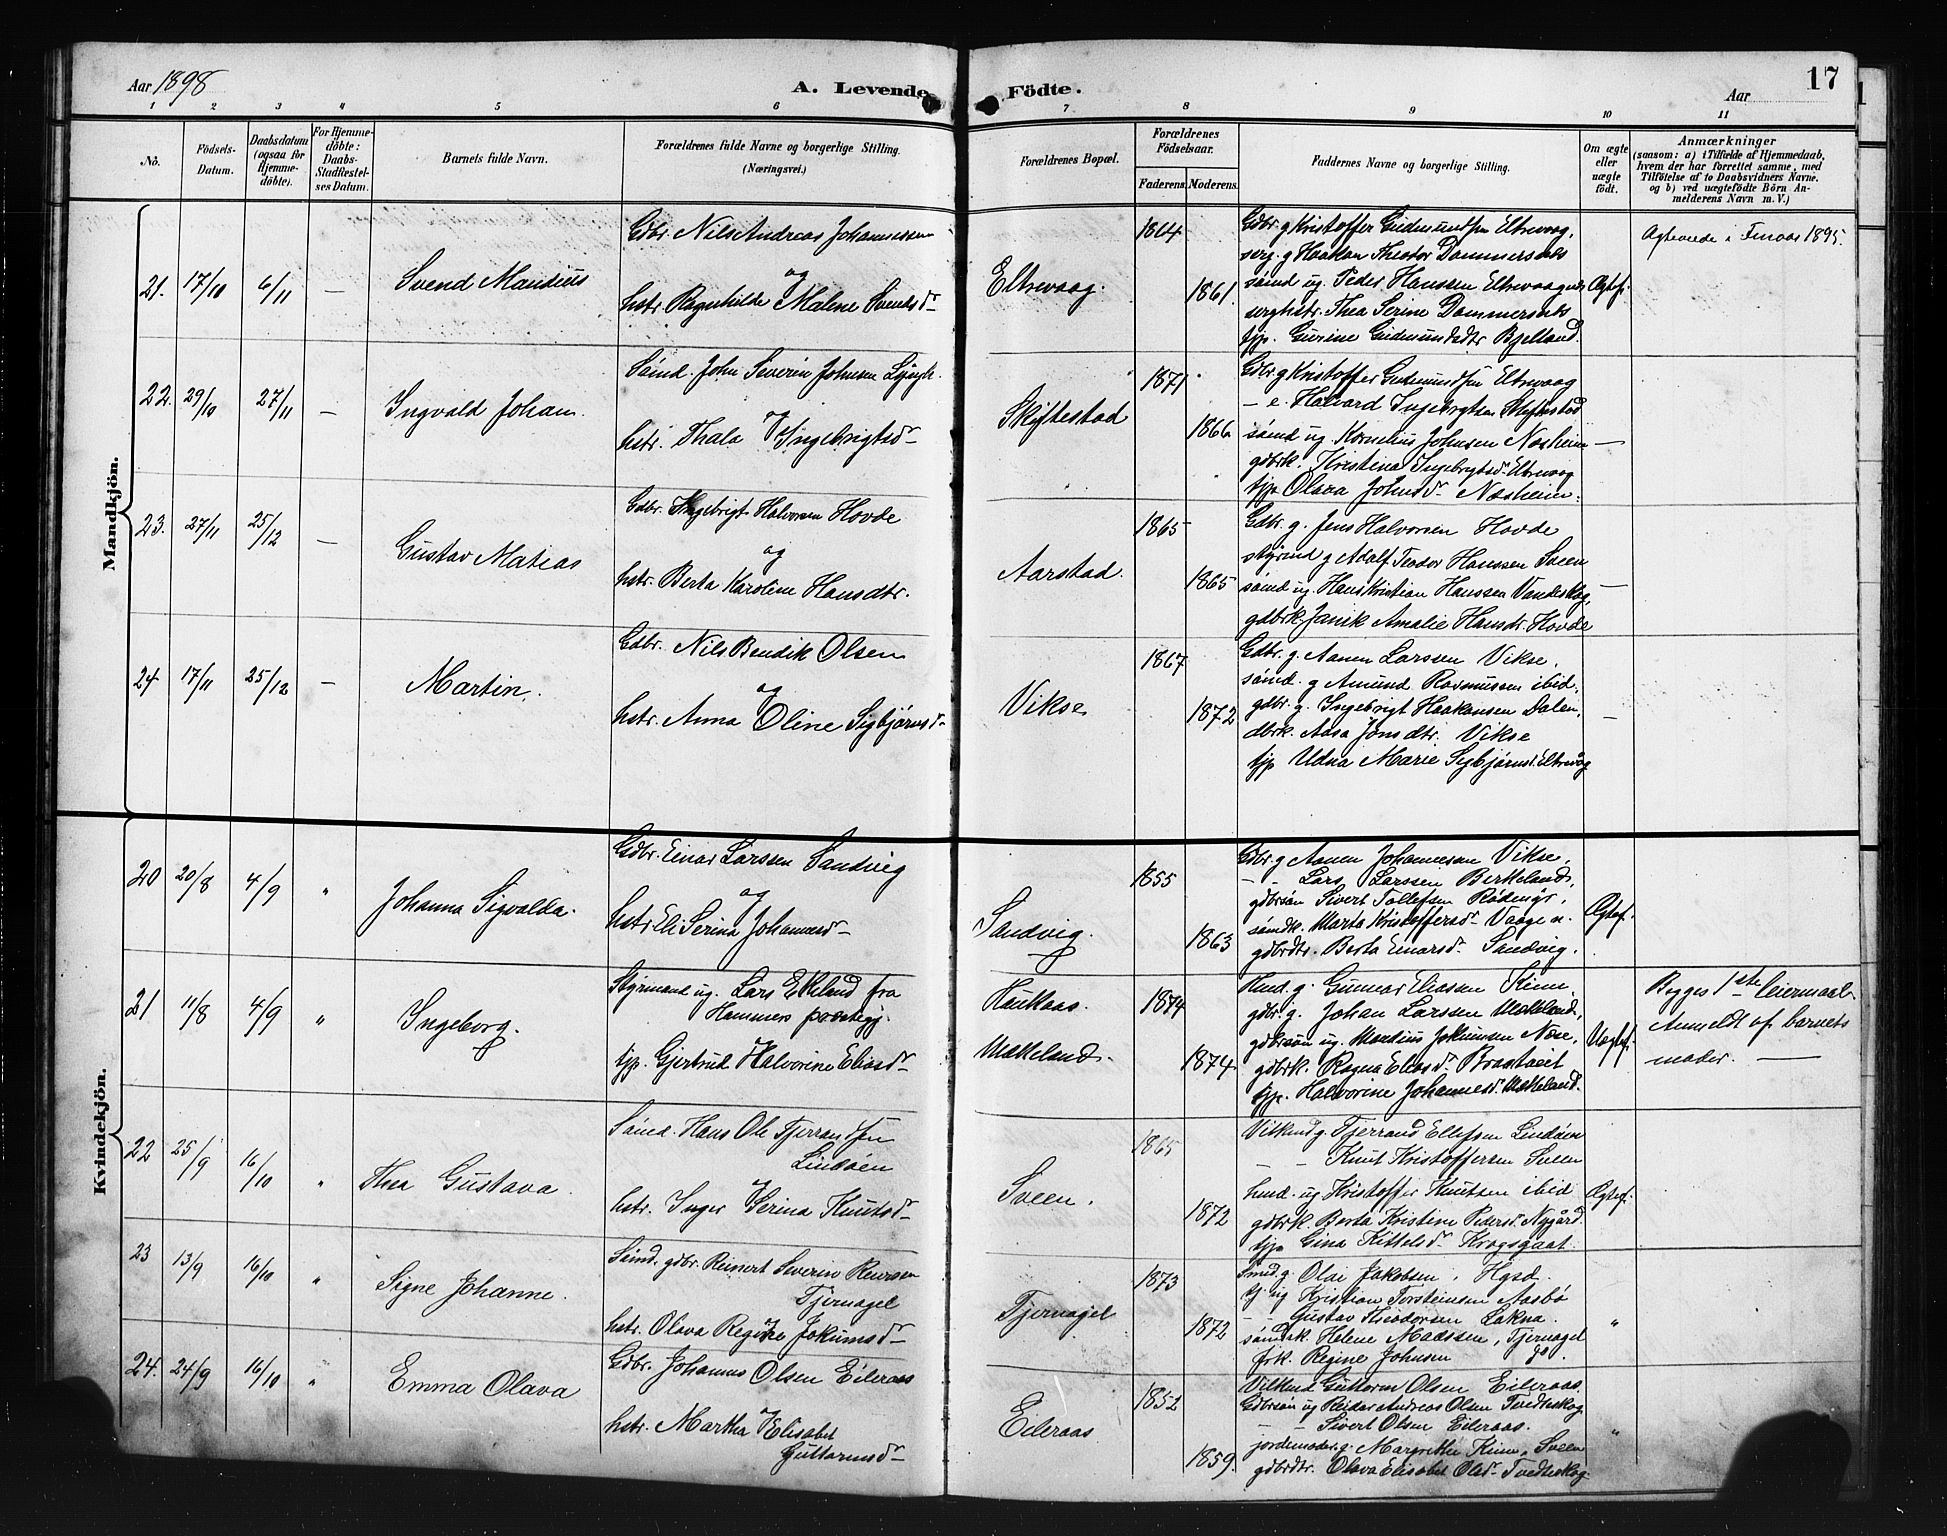 Aar 1898
A. Levende Födte.
Aar
17
1 2 3 4 5 6 7 8 9 10 11
No.
Födsels-Datum.
Daabsdatum (ogsaa for Hjemme-döbte).
For Hjemme-döbte: Daabs-Stadfæstel-ses Datum.
Barnets fulde Navn.
Forældrenes fulde Navne og borgerlige Stilling. (Næringsvei.)
Forældrenes Bopæl.
Forældrenes Födselsaar.
Faderens.
Moderens.
Faddernes Navne og borgerlige Stilling.
Om ægte eller uægte födt.
Anmærkninger
(saasom: a) i Tilfælde af Hjemmedaab, hvem der har forrettet samme, med Tilföielse af to Daabsvidners Navne. og b) ved uægtefödte Börn Anmelderens Navn m. V.)
Mandkjön.
21. 17/10 6/11 —
Svend Mandius
Gdbr. Nils Andreas Johannessen
og
hstr. Ragnhilde Malene Svendsdr
Eltrevaag.
1864
1861.
Gdbr. g Kristoffer Gudmundsen Eltrevaag,
serg. g Haakan Theodor Dommersnæs
sömd ug. Peder Hanssen Eltrevaag
serghstr. Thea Serine Dommersnæs
tjp. Gurine Gudmundsdtr Bjelland.
Ægtef.
Ægteviede i Finaas 1895.
22. 29/10 27/11 —
Ingvald Johan.
Sömd. John Severin Johnsen
og
hstr. Thala Ingebrigtsdr
Skiftestad
1871
1866
Gdbr g Kristoffer Gudmundsen Eltrevaag
— e. Halvard Ingebrigtsen Skiftestad
sömd ug. Kornelius Johnsen Næsheim
gdbrk. Kristina Ingebrigtsdr Eltrevaag
tjp Olava Johnsdr Næsheim.
—
23. 27/11 25/12 —
Gustav Matias
Gdbr. Ingebrigt Halvorsen Hovde
og
hstr. Berta Karoline Hansdtr.
Aarstad.
1865
1865
Gdbr. g. Jens Halvorsen Hovde
styrmd g Adolf Teodor Hanssen Sveen
sömd ug. Hans Kristian Hanssen Vandeskog,
gdbrk. Janik Amalie Hansdr. Hovde
—
24 17/11 25/12 —
Martin.
Gdbr. Nils Bendik Olsen
og
hstr. Anna Oline Sigbjörnsdr
Vikse
1867
1872
Gdbr. g. Aanen Larssen Vikse.
sömd. g Amund Rasmussen ibid.
gdbr. g. Ingebrigt Haakonsen Dalen,
dbrk. Aasa Jonsdtr. Vikse
tjp Udna Marie Sigbjörnsd. Eltrevåg
—
Kvindekjön.
20 20/8 4/9 "
Johanna Sigvalda.
Gdbr. Einar Larssen Sandvig
og
hstr Eli Serina Johannesdr
Sandvig.
1855
1863
Gdbr. g Aanen Johannesen Vikse,
— — Lars Larssen Berkeland,
gdbrsön Sivert Tollefsen Rödenös,
sömdk. Marta Kristoffersdr Vaage n.
gdbrdtr. Berta Einarsdr Sandvig.
Ægtef.
21 11/8 4/9 "
Ingeborg.
Styrmand ug. Lars Ekeland fra
Hammers prestegj.
og
tjp. Gjertrud Halvorine Eliasdr
Haukaas.
Mækeland.
1874
1874
Hmd. g. Gunnar Eliassen
gdbr. g. Johan Larssen Mækeland,
gdbrsön ug. Mandius Jokumsen Næse,
gdbrk. Ragna Eliasdr Bradtveit
tjp. Halvorine Johannesdr. Mækeland.
Uægtef.
Begges 1ste leiermaal.
Anmeldt af barnets
moder. —
22 25/9 16/10 "
Thea Gustava.
Sömd. Hans Ole Tjerrandsen
Lindöen
og
hstr. Inger Serina Knutsdr
Sveen.
1865
1872
Vilkmd g. Tjerrand Ellefsen Lindöen
— — Knut Kristoffersen Sveen
hmd. ug Kristoffer Knutsen ibid
gdbrk. Berta Kristine Pedersd. Nygård.
tjp Gina Kittelsdr Krogsgaat.
Ægtef.
23 13/9 16/10 "
Signe Johanne.
Sömd. gdbr. Reinert Severin
Tjernagel
og
hstr. Olava Regine Jokumsdr
Tjernagel
1873
1872
Smed g. Olai Jakobsen, Hgsd.
ug Kristian Torsteinsen Aasbö
— — Gustav Theodorsen Lokna.
sömdsk. Helene Madssen, Tjernagel
frk. Regine Johnsen do.
"
24. 24/9 16/10 "
Emma Olava
Gdbr. Johannes Olsen Eileraas
og
hstr. Martha Elisabet
Guttormsdr
Eileraas
1852
1859.
Vilkmd Guttorm Olsen Eileraas.
Gdbrsön ug Reidar Andreas Olsen Tvedteskog
— — Sivert Olsen Eileraas.
jordemoder g. Margrethe Sveen
gdbrdtr. Olava Elisabet Olsdr Tvedteskog
"